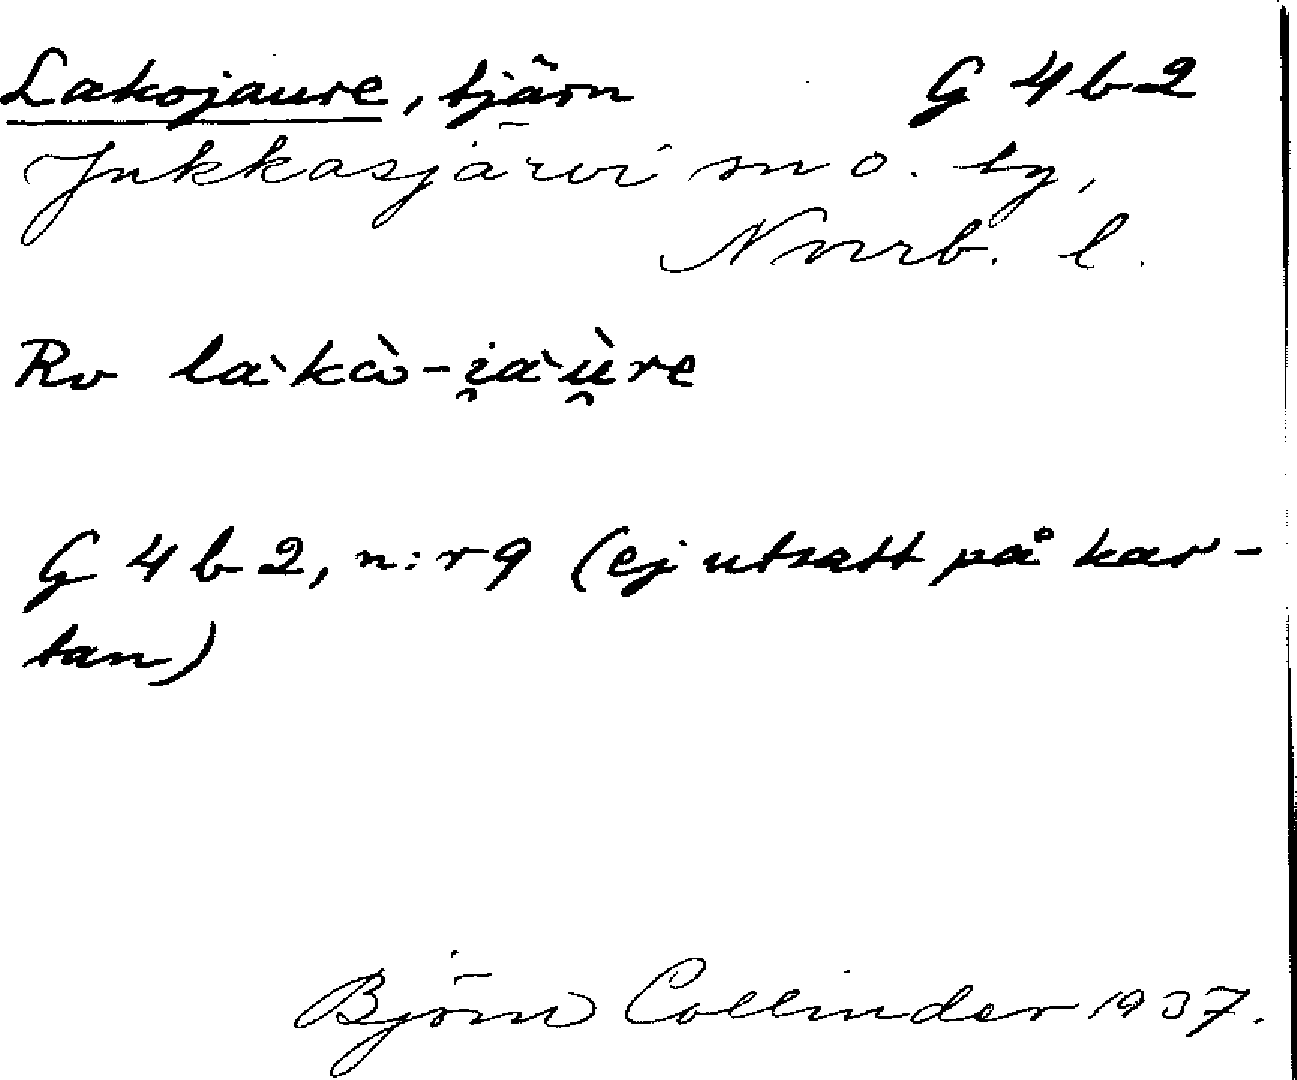 Lakojaure, tjärn G 4 b 2
Jukkasjärvi sn o. ty,
Norrb. l.
Ro làkò-i̯àù̯re
G 4 b 2, n:r 9 (ej utsatt på kar-
tan)
Björn Collinder 1937.